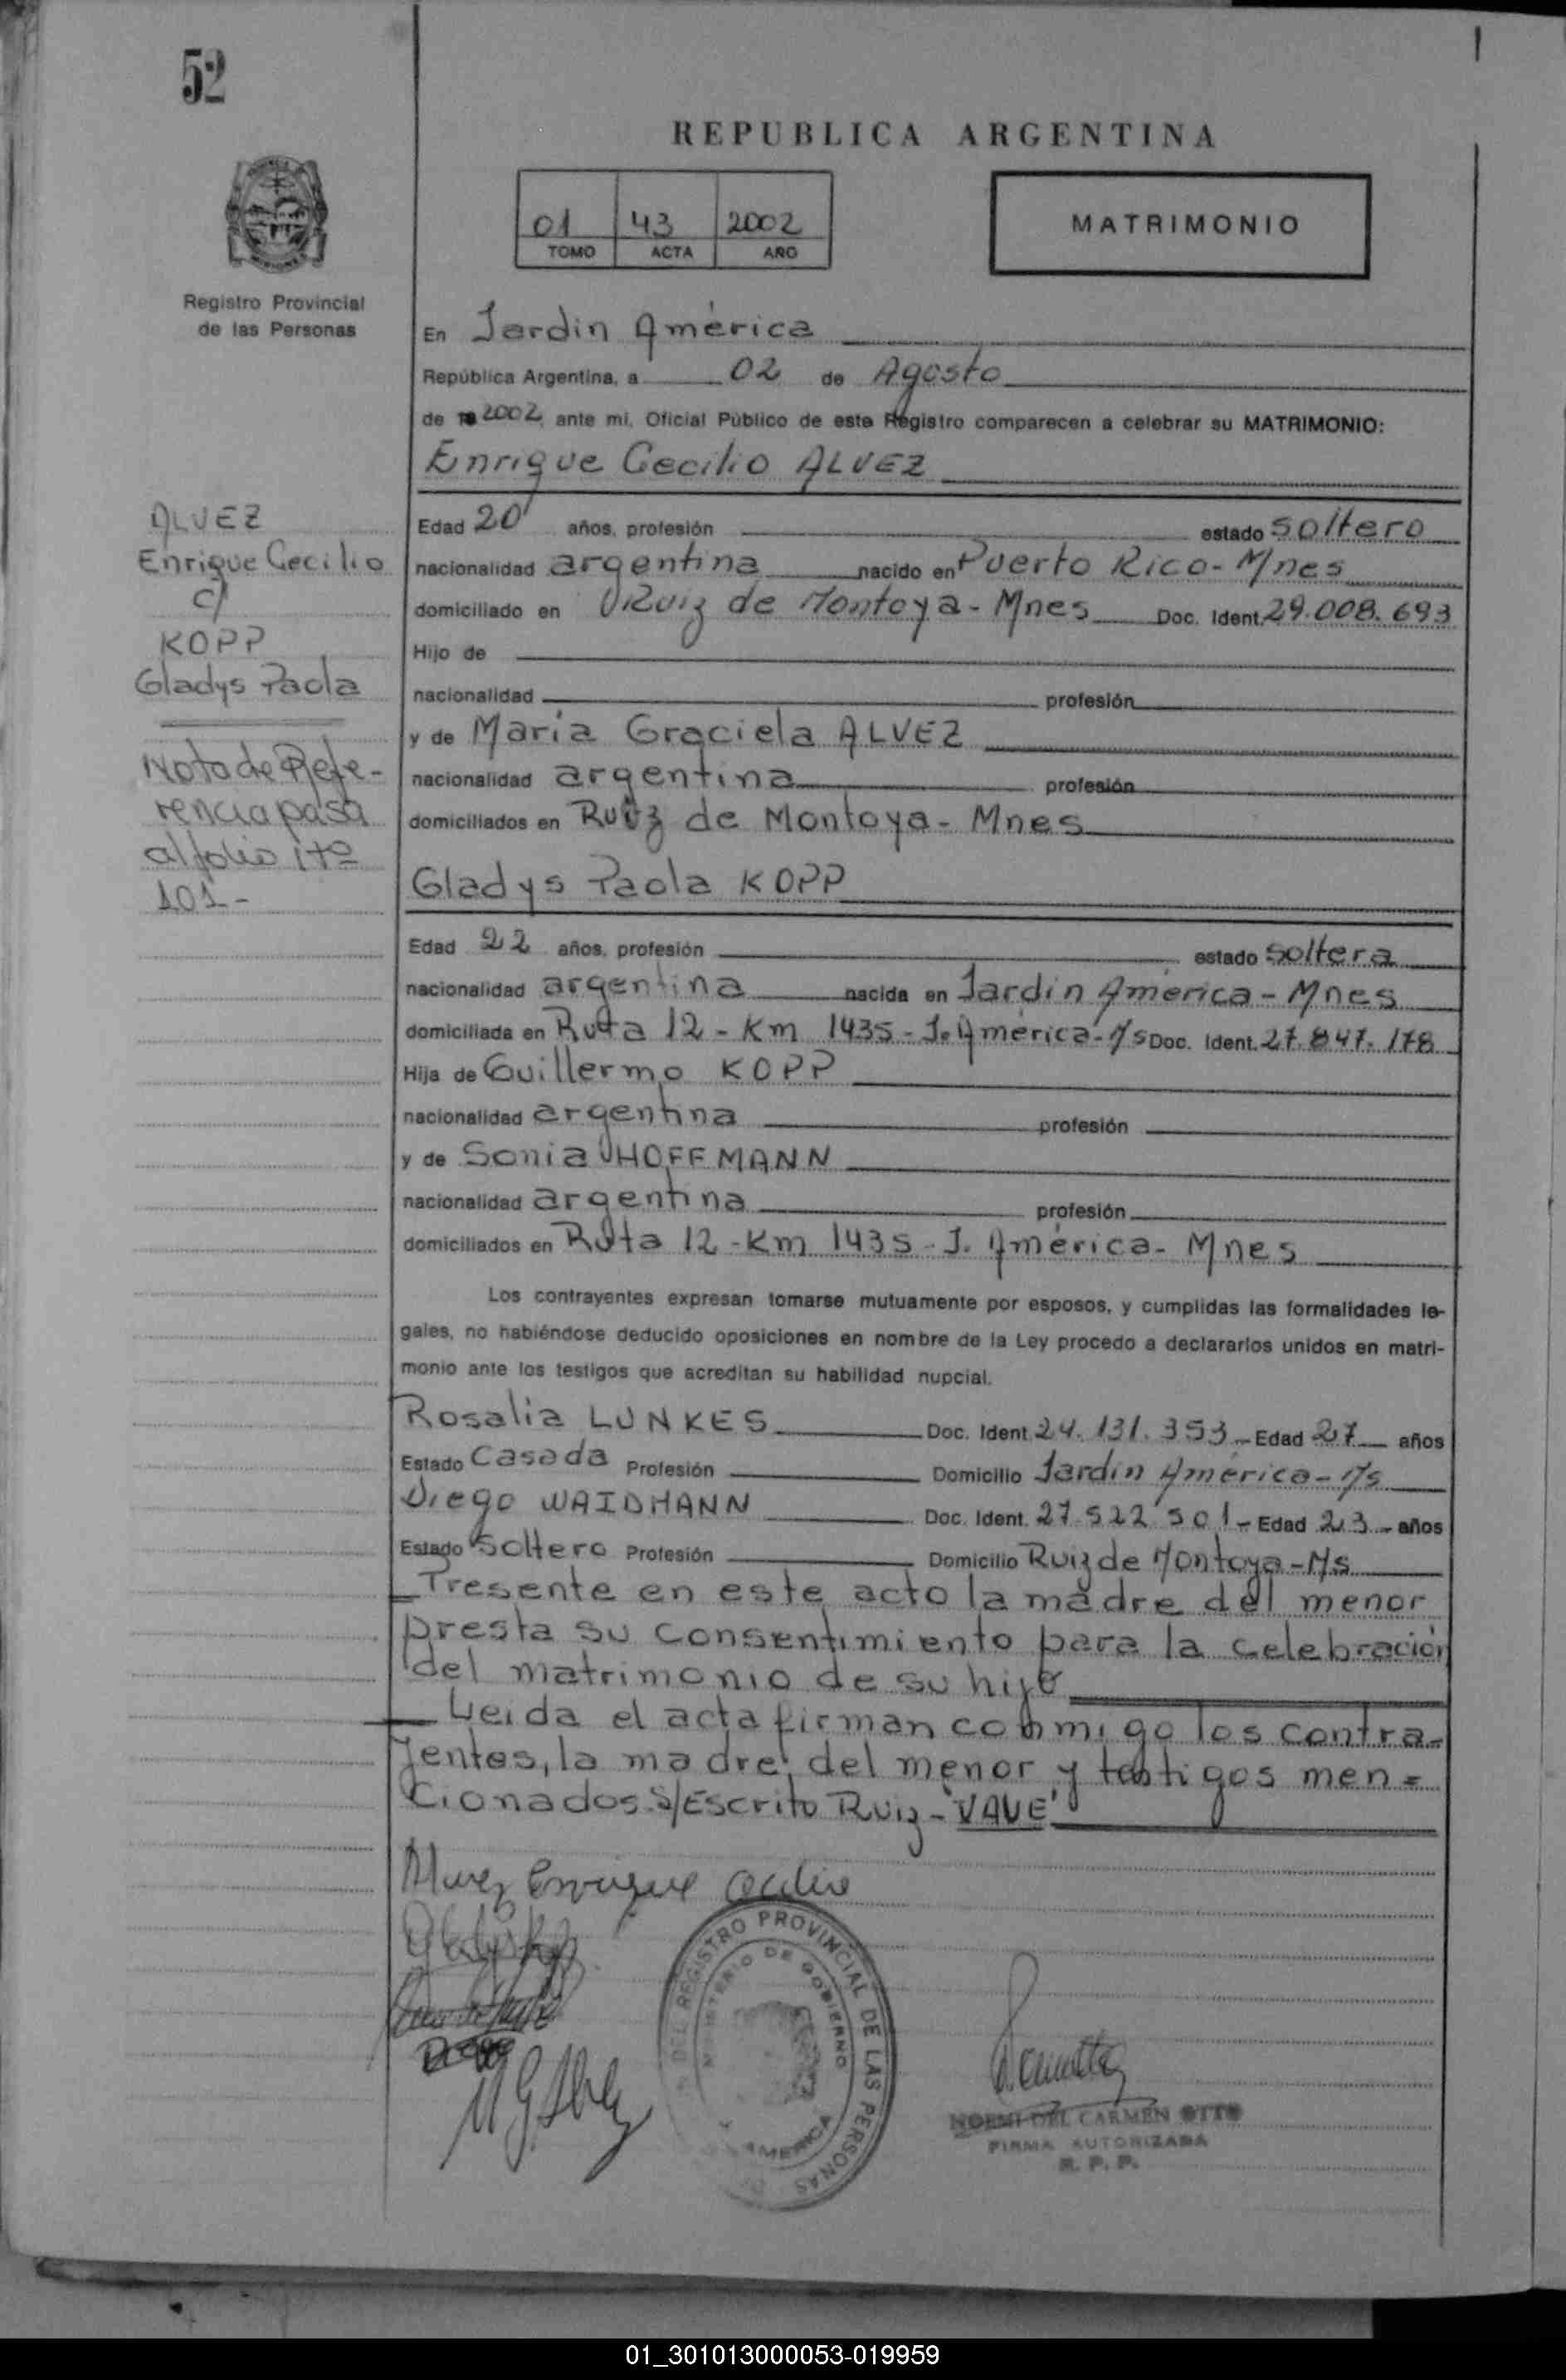 52
REPUBLICA ARGENTINA
01 43 2002
TOMO ACTA AÑO
MATRIMONIO
Registro Provincial
de las Personas
En Jardin América
República Argentina, a 02 de Agosto
de 2002 ante mi, Oficial Público de este Registro comparecen a celebrar su MATRIMONIO:
Enrique Cecilio ALVEZ
ALVEZ
Enrique Cecilio
c/
KOPP
Gladys Paola
Nota de Refe-
rencia pasa
al folio
101-
Edad 20 años, profesión estado soltero
nacionalidad argentina nacido en Puerto Rico - Mnes
domiciliado en Ruiz de Montoya - Mnes Doc. Ident. 29.008.693
Hijo de
nacionalidad profesión
y de María Graciela ALVEZ
nacionalidad argentina profesión
domiciliados en Ruiz de Montoya - Mnes
Gladys Paola KOPP
Edad 22 años, profesión estado soltera
nacionalidad argentina nacida en Jardin América - Mnes
domiciliada en Ruta 12 - Km 1435 - J. América - Doc. Ident. 27.847.178
Hija de Guillermo KOPP
nacionalidad argentina profesión
y de Sonia HOFFMANN
nacionalidad argentina profesión
domiciliados en Ruta 12 - Km 1435 - J. América - Mnes
Los contrayentes expresan tomarse mutuamente por esposos, y cumplidas las formalidades le-
gales, no habiéndose deducido oposiciones en nombre de la Ley procedo a declararlos unidos en matri-
monio ante los testigos que acreditan su habilidad nupcial.
Rosalia LUNKES Doc. Ident. 24.131.353 - Edad 27 años
Estado Casada Profesión Domicilio Jardin América - M/s
Diego WAIDMANN Doc. Ident. 27.522 501 - Edad 23 - años
Estado Soltero Profesión Domicilio Ruiz de Montoya - M/s
Presente en este acto la madre del menor
presta su consentimiento para la celebración
del matrimonio de su hijo
Leida el acta firman conmigo los contra-
yentes, la madre del menor y testigos men=
cionados. S/Escrito Ruiz - "VALE"
Alvez Enrique Cecilio
DEL REGISTRO PROVINCIAL DE LAS PERSONAS
MINISTERIO DE GOBIERNO
AMERICA
NOEMI DEL CARMEN OTTO
FIRMA AUTORIZADA
R. P. P.
01_301013000053-019959